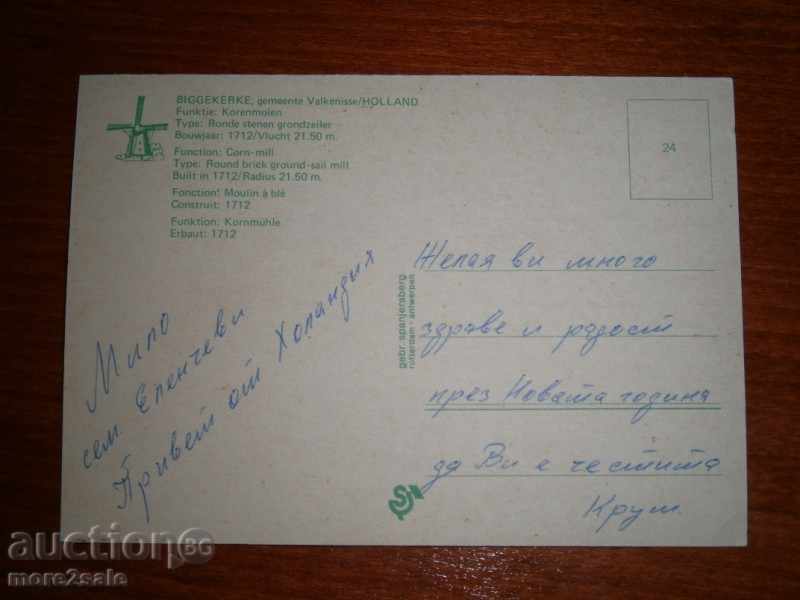 BIGGEKERKE, gemeente Valkenisse/HOLLAND
Funktie: Korenmolen
Type: Ronde stenen grondzeiler
Bouwjaar: 1712/Vlucht 21.50 m.
Function: Corn-mill
Type: Round brick ground-sail mill
Built in 1712/Radius 21.50 m.
Fonction: Moulin à blé
Construit: 1712
Funktion: Kornmühle
Erbaut: 1712
24
Мило
сем. Еленчеви
Привет от Холандия
gebr. spanjersberg
rotterdam - antwerpen
Желая ви много
здраве и радост
през Новата година
да Ви е честита
Крум
auction86
more2sale